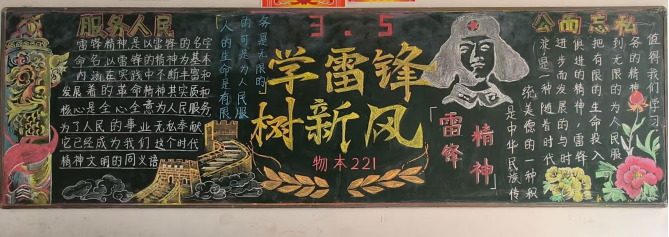 服务人民
雷锋精神是以雷锋的名字
命名,以雷锋的精神为基本
内涵在实践中不断丰富和
发展着的革命精神其实质和
核心是全心全意为人民服务
为了人民的事业无私奉献
它已经成为我们这个时代
精神文明的同义语
人的生命是有限
的可是为人民服
务是无限的
3.5
学雷锋
树新风
物本221
「雷锋
精神」
公而忘私
值得我们学习
务的精神
到无限的为人民服
把有限的生命投入
俱进的精神,雷锋
进步而发展的与时
是一种随着时代
统美德的一种积
是中华民族传